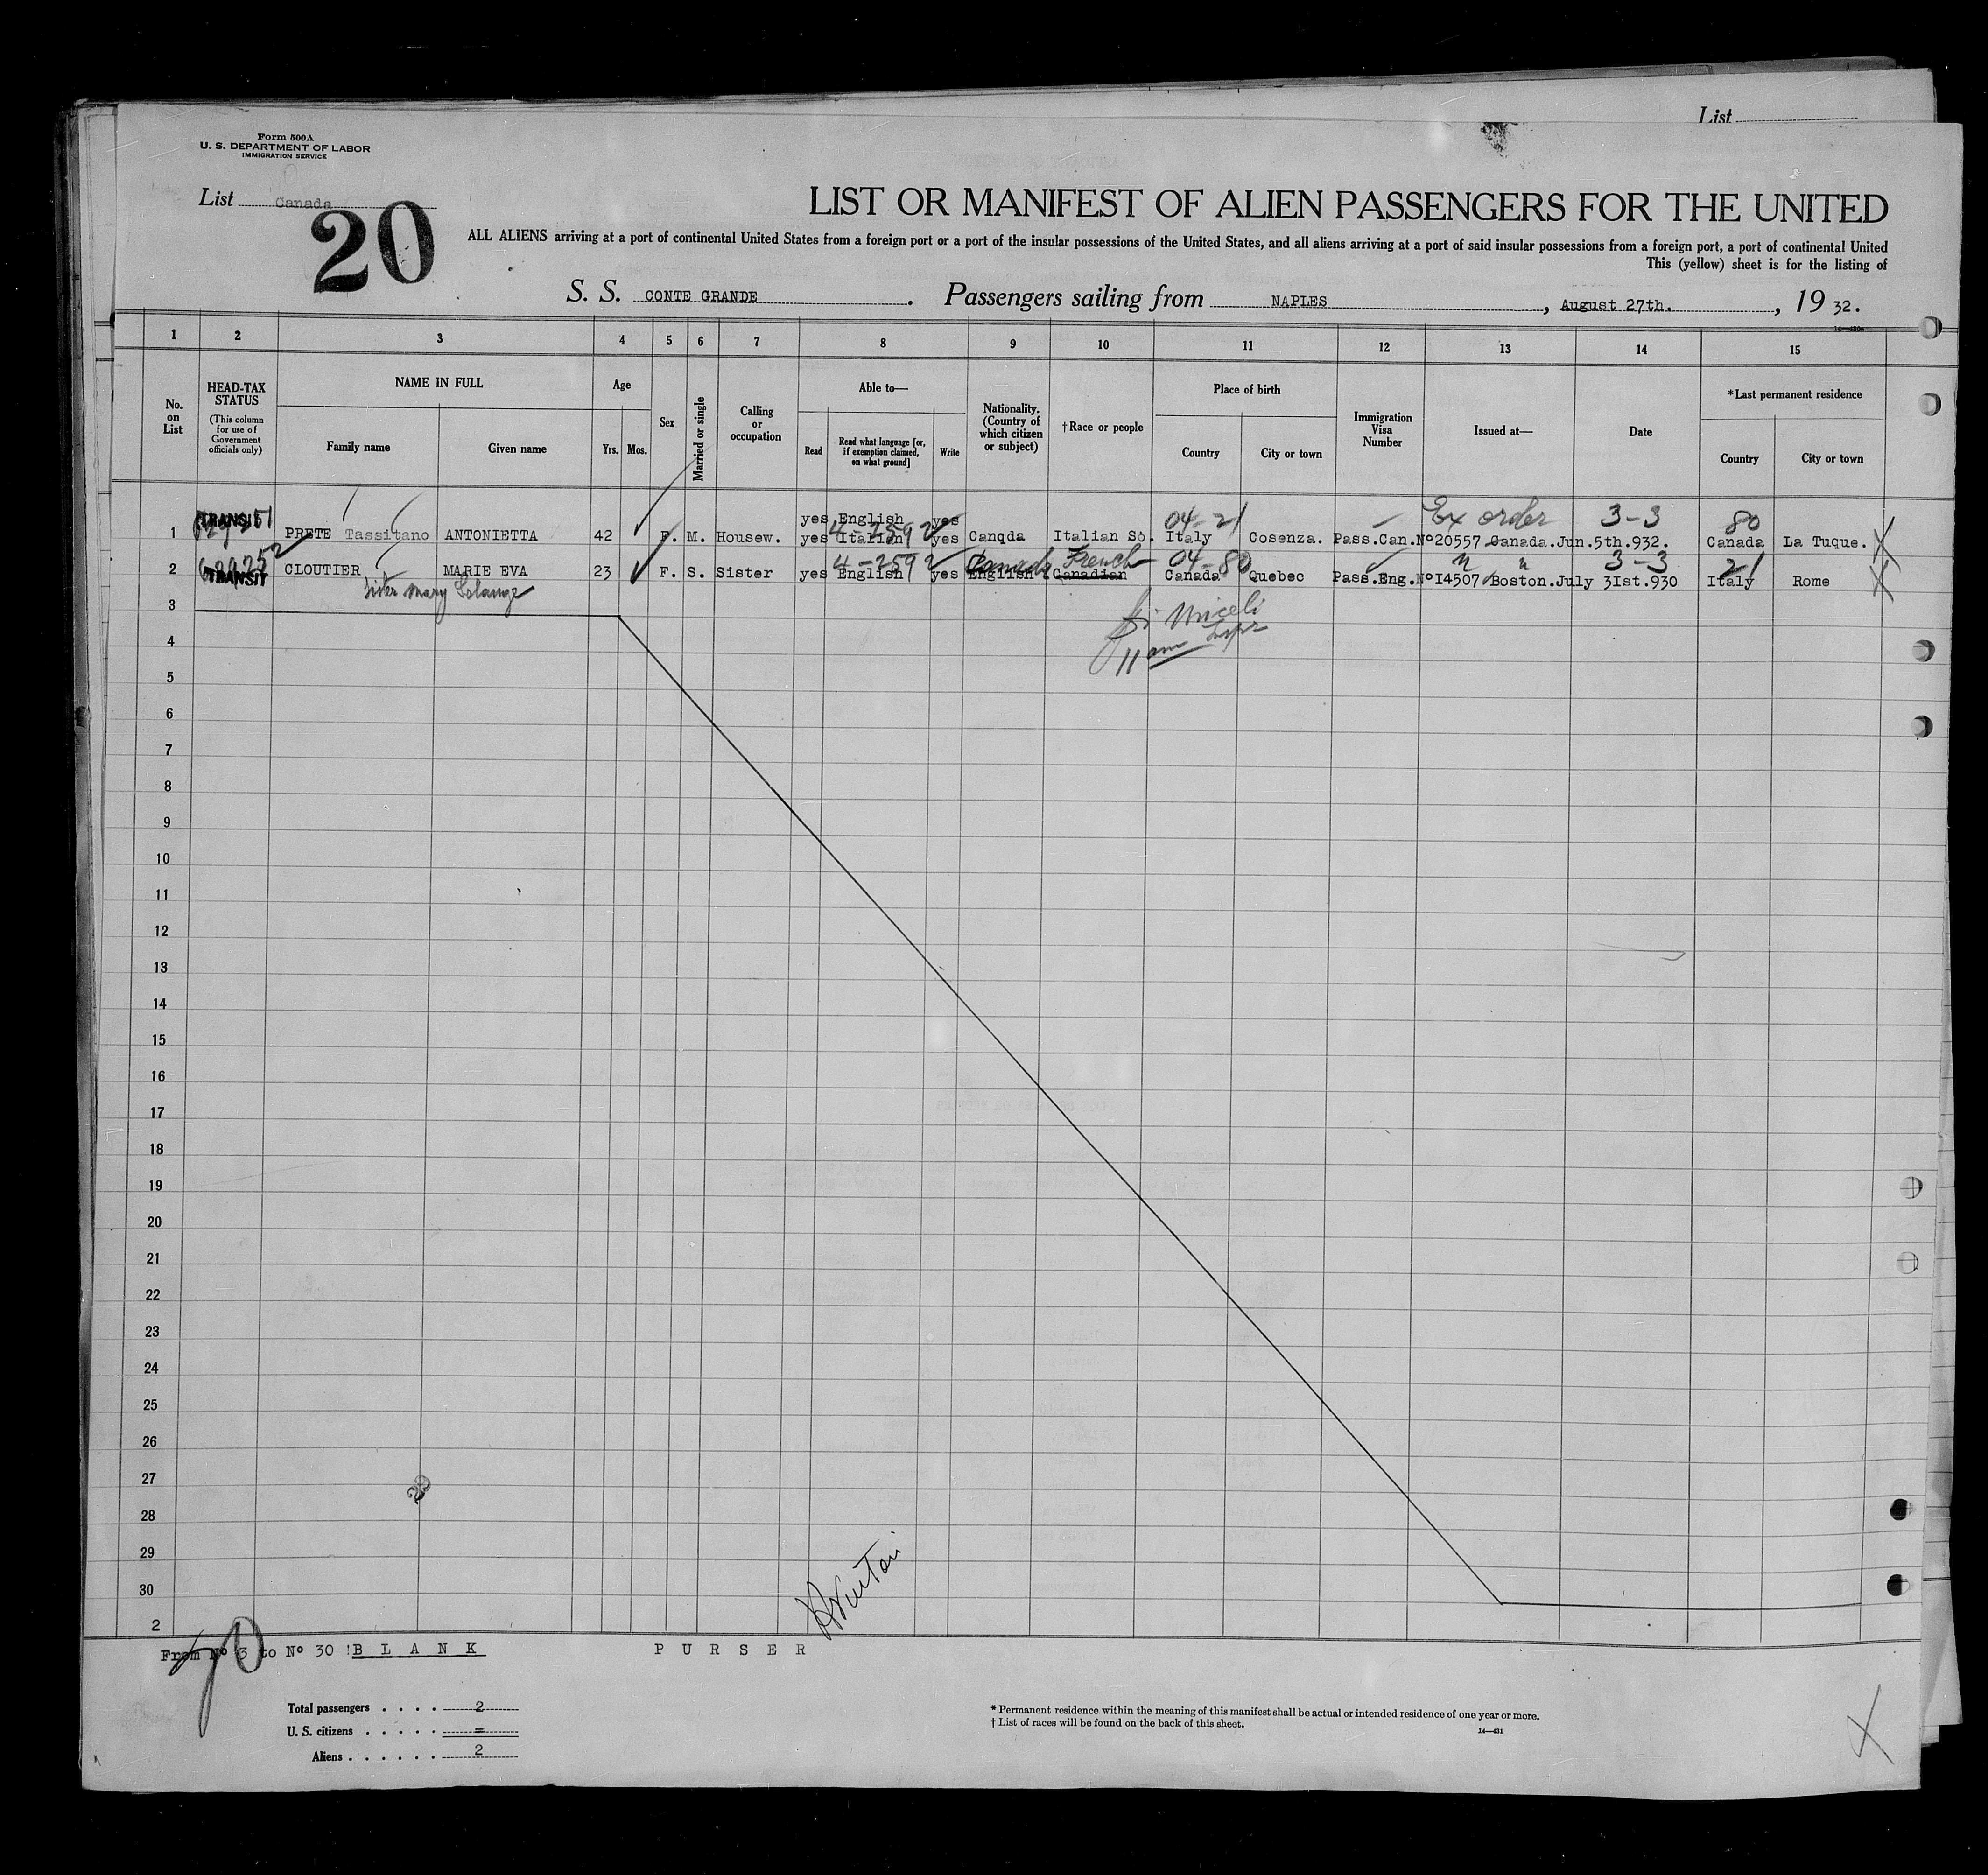 List
Form 500A
U. S. DEPARTMENT OF LABOR
IMMIGRATION SERVICE
List Canada
20
LIST OR MANIFEST OF ALIEN PASSENGERS FOR THE UNITED
ALL ALIENS arriving at a port of continental United States from a foreign port or a port of the insular possessions of the United States, and all aliens arriving at a port of said insular possessions from a foreign port, a port of continental United
This (yellow) sheet is for the listing of
S. S. CONTE GRANDE. Passengers sailing from NAPLES, August 27th., 19 32.
1 2 3 4 5 6 7 8 9 10 11 12 13 14 15
No. on List
HEAD-TAX STATUS
(This column for use of Government officials only)
NAME IN FULL
Family name Given name
Age
Yrs. Mos.
Sex
Married or single
Calling or occupation
Able to—
Read
Read what language [or, if exemption claimed, on what ground]
Write
Nationality. (Country of which citizen or subject)
†Race or people
Place of birth
Country City or town
Immigration Visa Number
Issued at—
Date
*Last permanent residence
Country City or town
TRANSIT yes English yes 04-21 Ex order 3-3 80
1 PRETE Tassitano ANTONIETTA 42 F. M. Housew. yes Italian yes Canqda Italian So. Italy Cosenza. Pass.Can.Nº20557 Canada.Jun.5th.932. Canada La Tuque. X
4-2592 Canada French 04-80 " " 3-3 21
2 TRANSIT CLOUTIER MARIE EVA 23 F. S. Sister yes English yes English Canadian Canada Quebec Pass.Eng.NºI4507 Boston.July 3Ist.930 Italy Rome X
Sister Mary Solange
3
4
11 am
5
6
7
8
9
10
11
12
13
14
15
16
17
18
19
20
21
22
23
24
25
26
27
28
29
30
2
From Nº 3 to Nº 30 B L A N K P U R S E R
Total passengers . . . . 2
U. S. citizens . . . . . =
Aliens . . . . . . 2
* Permanent residence within the meaning of this manifest shall be actual or intended residence of one year or more.
† List of races will be found on the back of this sheet.
14—431
X